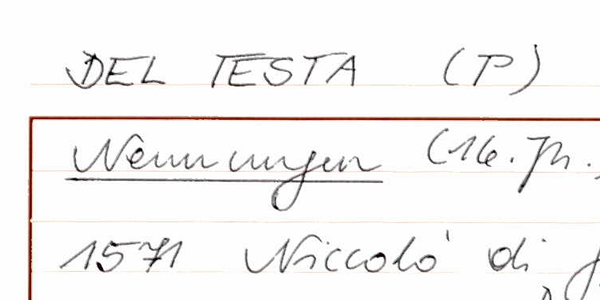 DEL TESTA (P)
Nennungen (16. Jh.
1571 Niccolò di